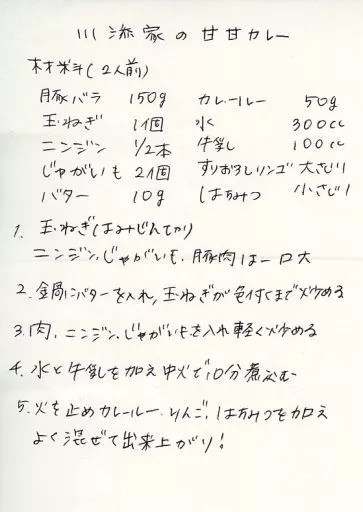 川添家の甘甘カレー
材料(2人前)
豚バラ 150g カレールー 50g
玉ねぎ 1個 水 300cc
ニンジン 1/2本 牛乳 100cc
じゃがいも 2個 すりおろしリンゴ 大さじ1
バター 10g はちみつ 小さじ1
1. 玉ねぎ(はみじんぎり)
ニンジン、じゃがいも、豚肉は一口大
2. 鍋にバターを入れ、玉ねぎが色付くまで炒める
3. 肉、ニンジン、じゃがいもを入れ軽く炒める
4. 水と牛乳を加え中火で10分煮込む
5. 火を止めカレールー、りんご、はちみつを加え
よく混ぜて出来上がり!